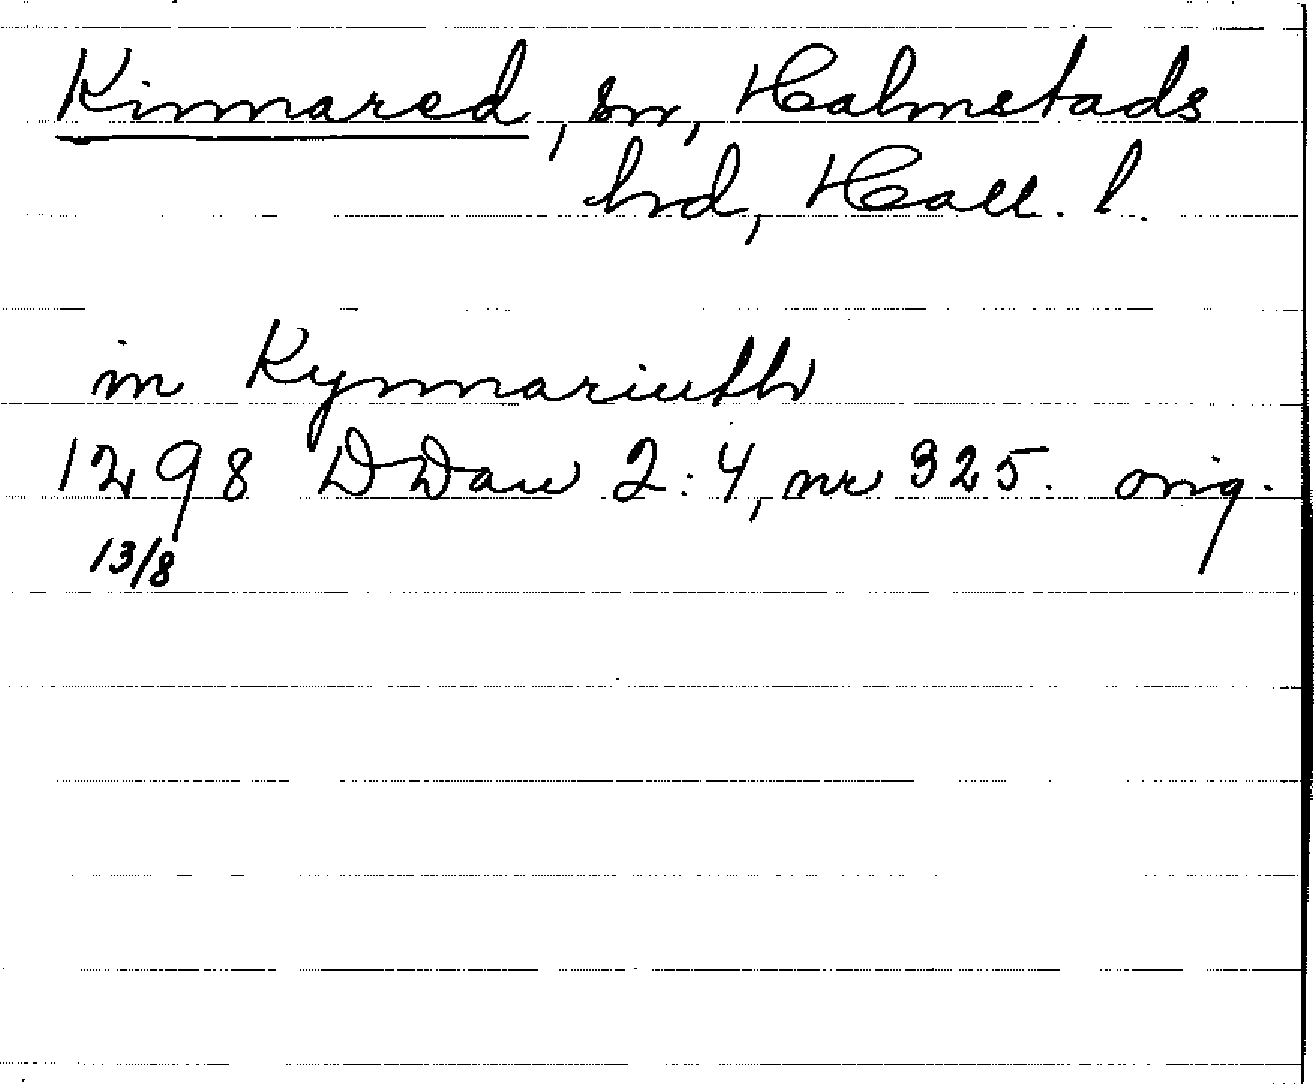 Kinnared, sn, Halmstads
hd, Hall. l.
in Kynnariuth
1298 DDan 2:4, nr 325. orig.
13/8